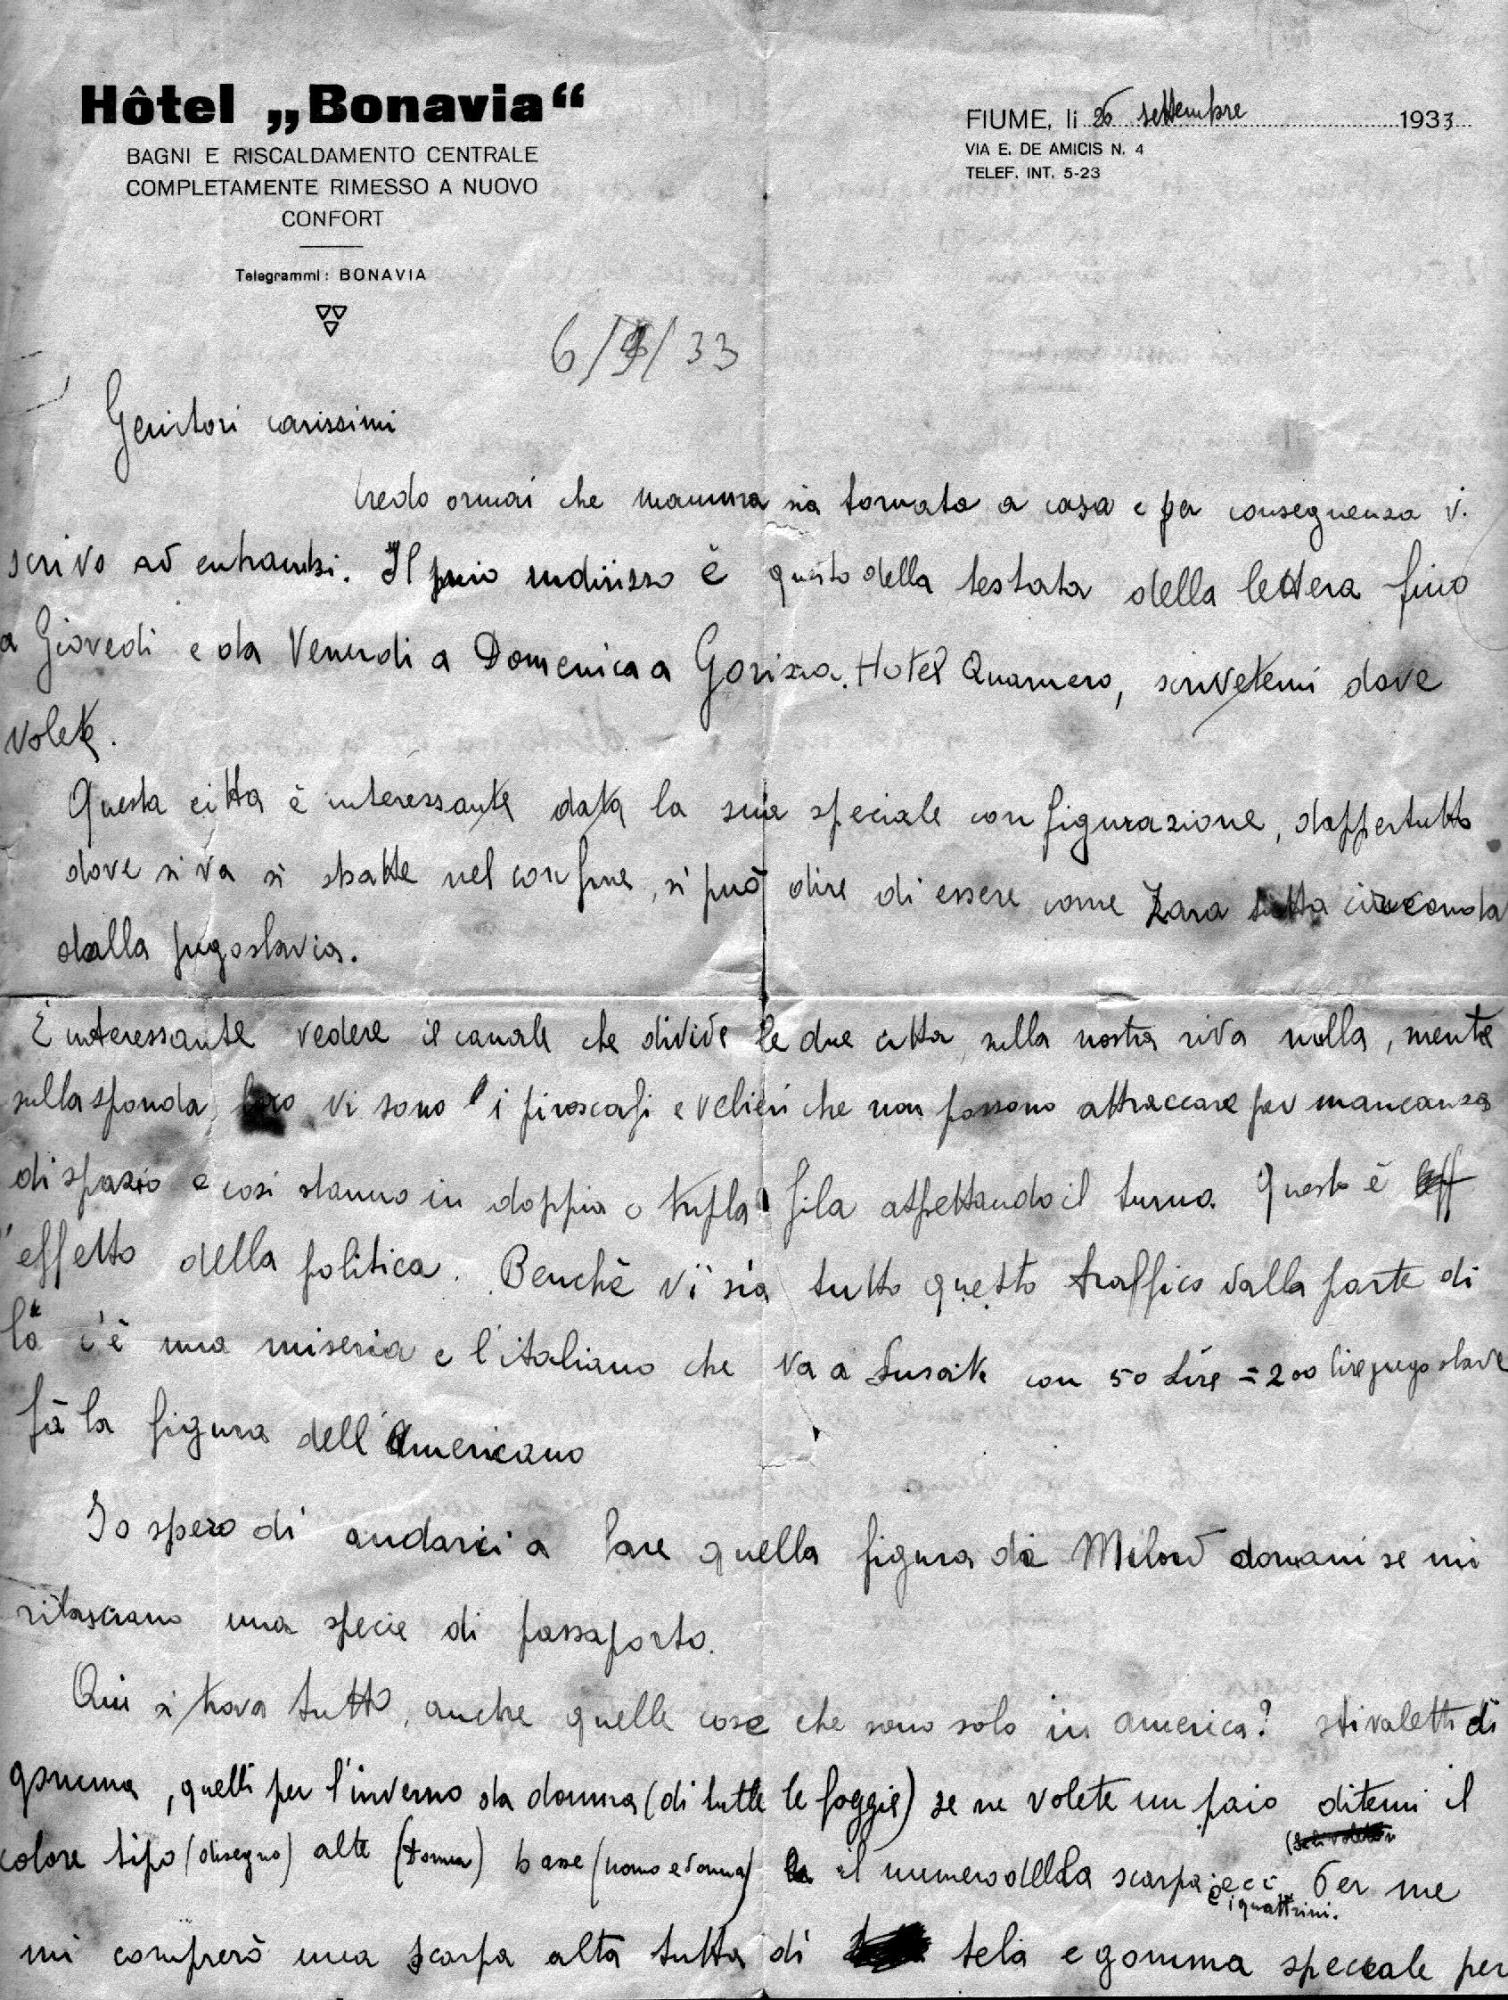 Hôtel „Bonavia“
BAGNI E RISCALDAMENTO CENTRALE
COMPLETAMENTE RIMESSO A NUOVO
CONFORT
Telegrammi: BONAVIA
FIUME, li 26 settembre 1933
VIA E. DE AMICIS N. 4
TELEF. INT. 5-23
6/9/33
Genitori carissimi
Credo ormai che mamma sia tornata a casa e per conseguenza vi
scrivo ad entrambi. Il mio indirizzo è questo della testata della lettera fino
a Giovedi e da Venerdi a Domenica a Gorizia. Hotel Quarnero, scrivetemi dove
volete.
Questa citta è interessante data la sua speciale configurazione, dappertutto
dove si va si sbatte nel confine, si può dire di essere come Zara tutta circonda
dalla jugoslavia.
È interessante vedere il canale che divide le due citta, sulla nostra riva nulla, mentre
sulla sponda loro vi sono i piroscafi e velieri che non possono attraccare per mancanza
di spazio e cosi stanno in doppia o tripla fila aspettando il turno. Questo è
l'effetto della politica. Benchè vi sia tutto questo traffico dalla parte di
là c'è una miseria e l'italiano che va a Susak con 50 Lire = 200 lire jugoslave
fà la figura dell'Americano
Io spero di andarci a fare quella figura di Milord domani se mi
rilasciano una specie di passaporto.
Qui si trova tutto, anche quelle cose che sono solo in america? stivaletti di
gomma, quelli per l'inverno da donna (di tutte le foggie) se ne volete un paio ditemi il
colore tipo (disegno) alte (donna) basse (uomo e donna) il numero della scarpa ecc. Per me
e i quattrini.
mi comprerò una scarpa alta tutta di tela e gomma speciale per